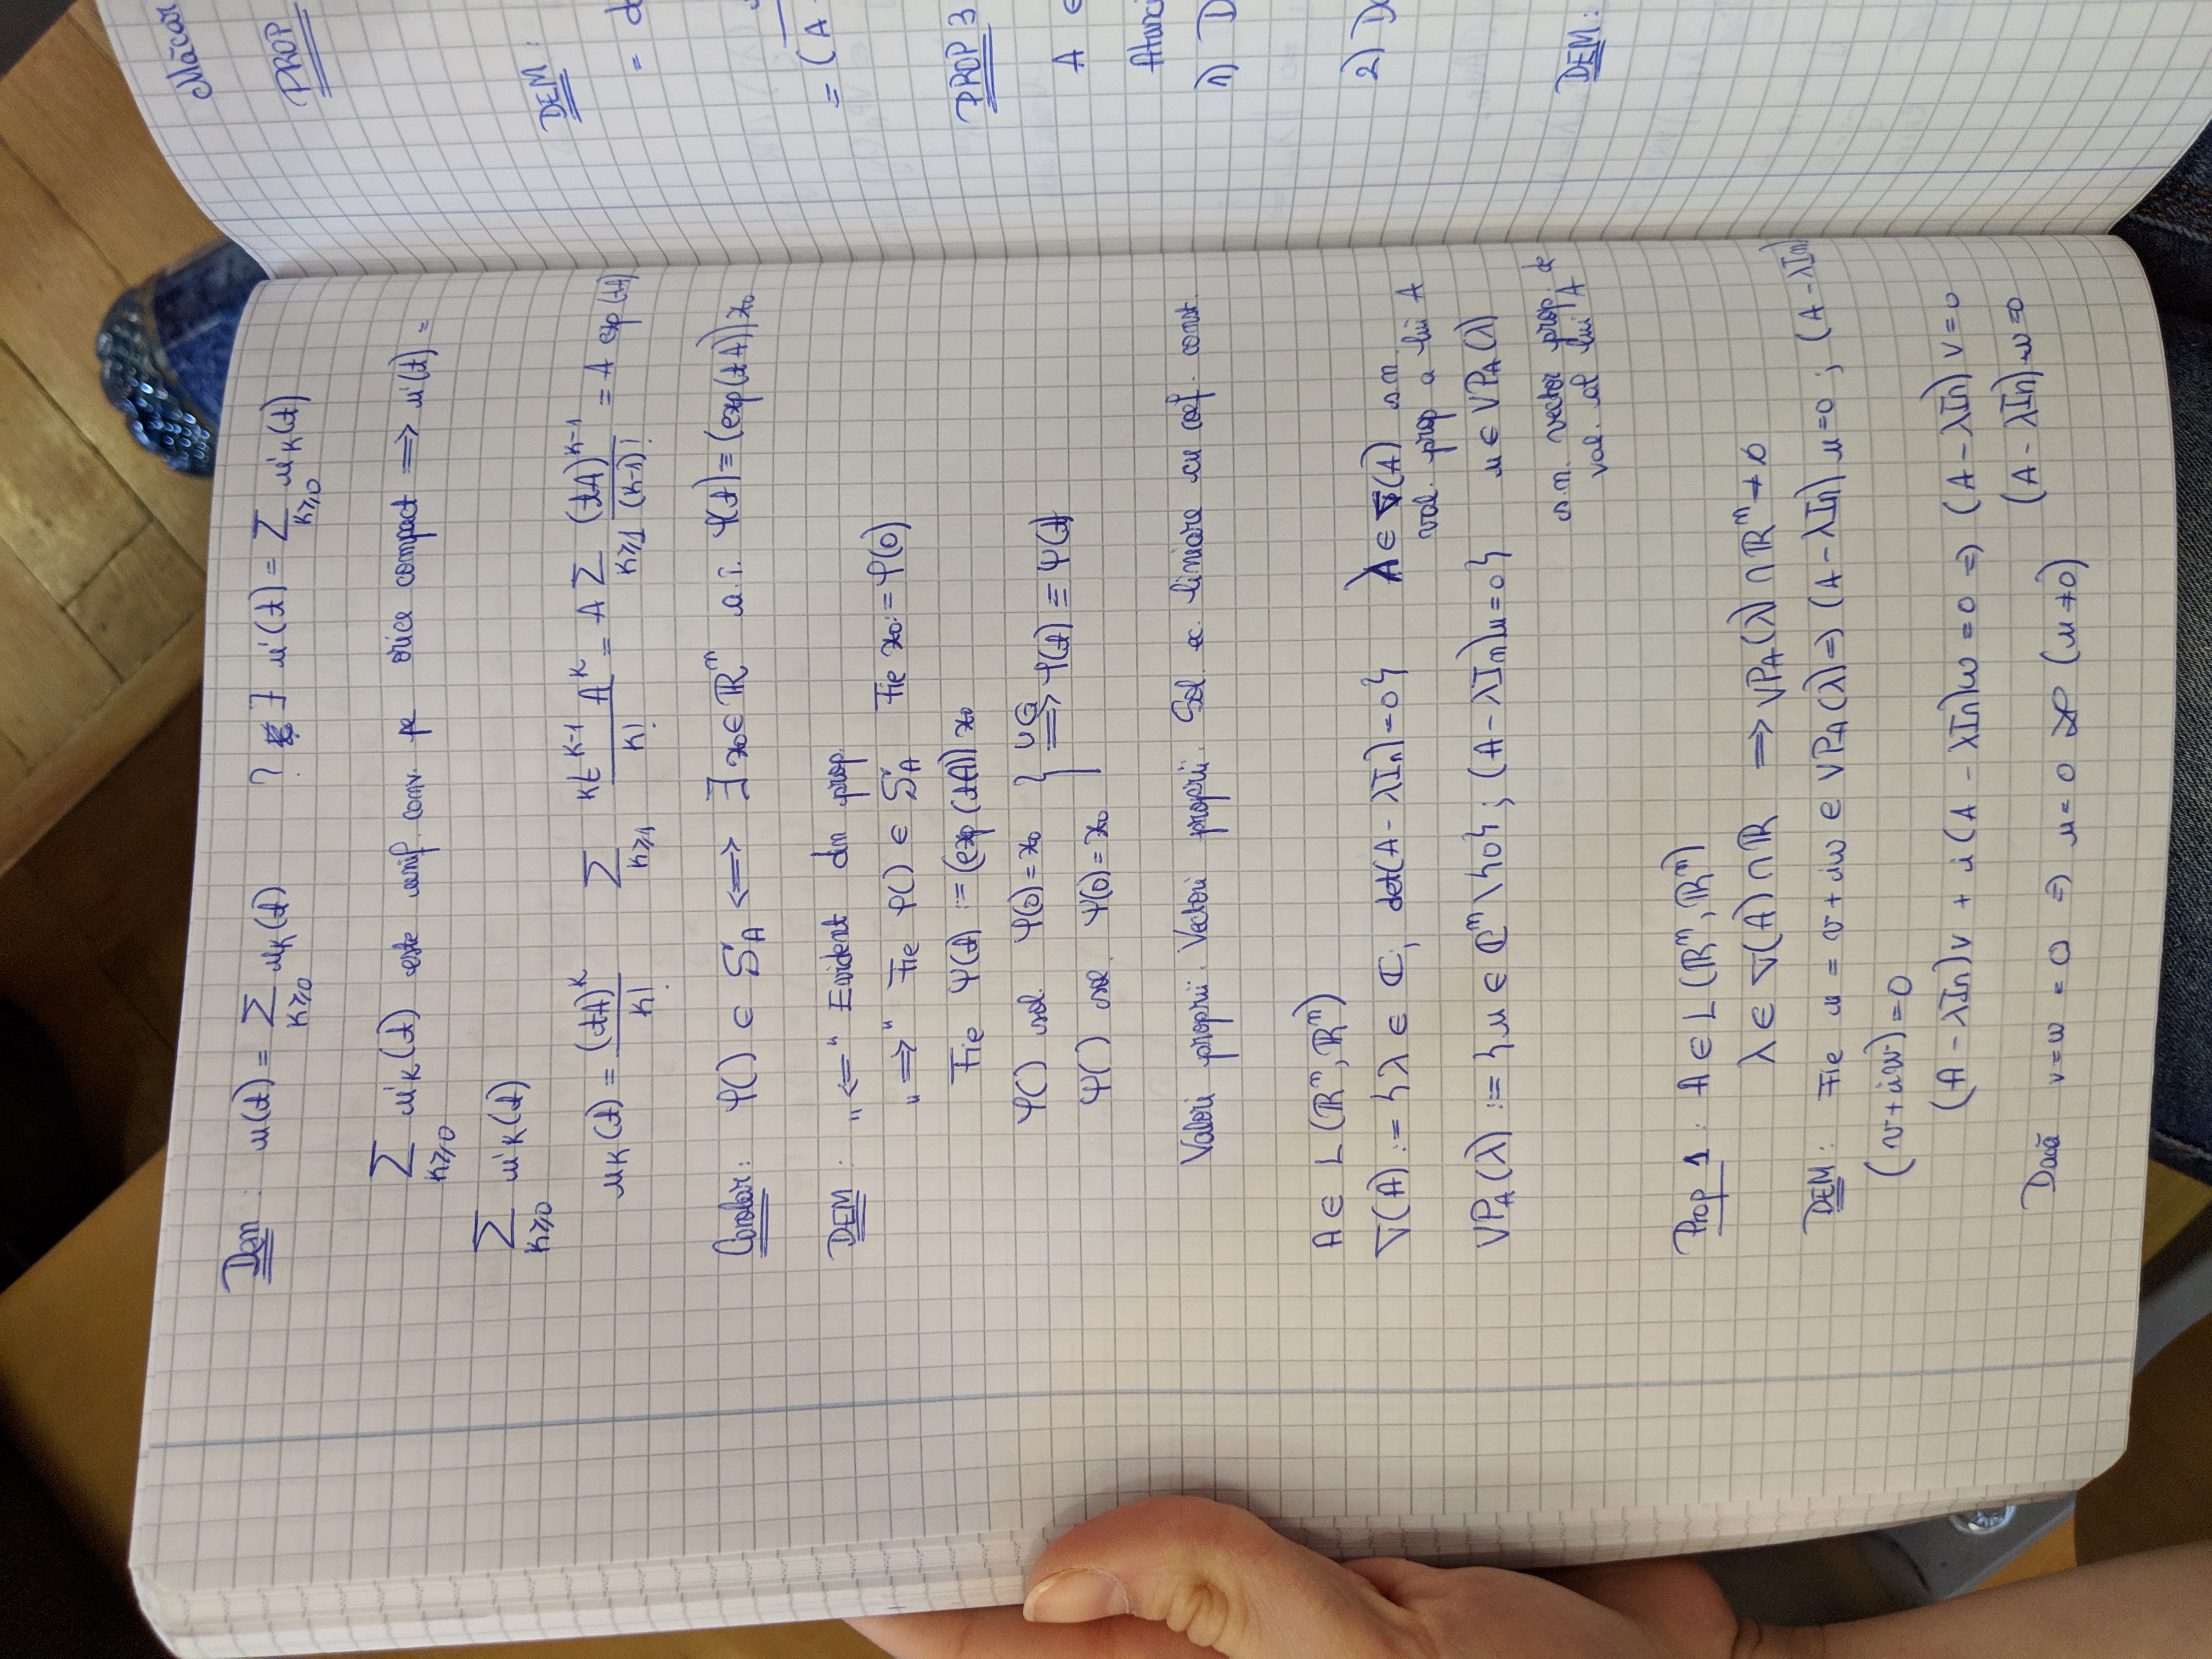 Dem : u(t) = ∑_{K≥0} u_K(t) ? ∃ u'(t) = ∑_{K≥0} u'_K(t)
∑_{K≥0} u'_K(t) este unif. conv. pe orice compact ⟹ u'(t) =
∑_{K≥0} u'_K(t)
u_K(t) = (tA)^K / K! ∑_{K≥1} K t^{K-1} A^K / K! = A ∑_{K≥1} (tA)^{K-1} / (K-1)! = A exp(tA)
Corolar: φ() ∈ S_A ⟺ ∃ x₀ ∈ ℝⁿ a.î. φ(t) ≡ (exp(tA)) x₀
DEM : „⟸" Evident din prop.
„⟹" Fie φ() ∈ S_A Fie x₀ := φ(0)
Fie Ψ(t) := (exp(tA)) x₀
φ() sol. φ(0) = x₀ } U G ⟹ φ(t) ≡ Ψ(t)
Ψ() sol. Ψ(0) = x₀
Valori proprii. Vectori proprii. Sol. ec. liniare cu coef. const.
A ∈ L(ℝⁿ, ℝⁿ)
σ(A) := {λ ∈ ℂ; det(A - λIn) = 0} λ ∈ σ(A) s.n.
val. prop a lui A
VP_A(λ) := {u ∈ ℂⁿ \ {0}; (A - λIn)u = 0} u ∈ VP_A(λ)
s.n. vector prop. de
val. al lui A
Prop 1 : A ∈ L(ℝⁿ, ℝⁿ)
λ ∈ σ(A) ∩ ℝ ⟹ VP_A(λ) ∩ ℝⁿ ≠ ∅
DEM : Fie u = v + iw ∈ VP_A(λ) ⇒ (A - λIn) u = 0 ; (A - λIn)
(v + iw) = 0
(A - λIn)v + i(A - λIn)w = 0 ⇒ (A - λIn) v = 0
(A - λIn) w = 0
Dacă v = w = 0 ⇒ u = 0 (u ≠ 0)
Măcar
PROP
DEM :
= d
= (A
PROP 3
A ∈
Atunci
1) D
2) D
DEM :